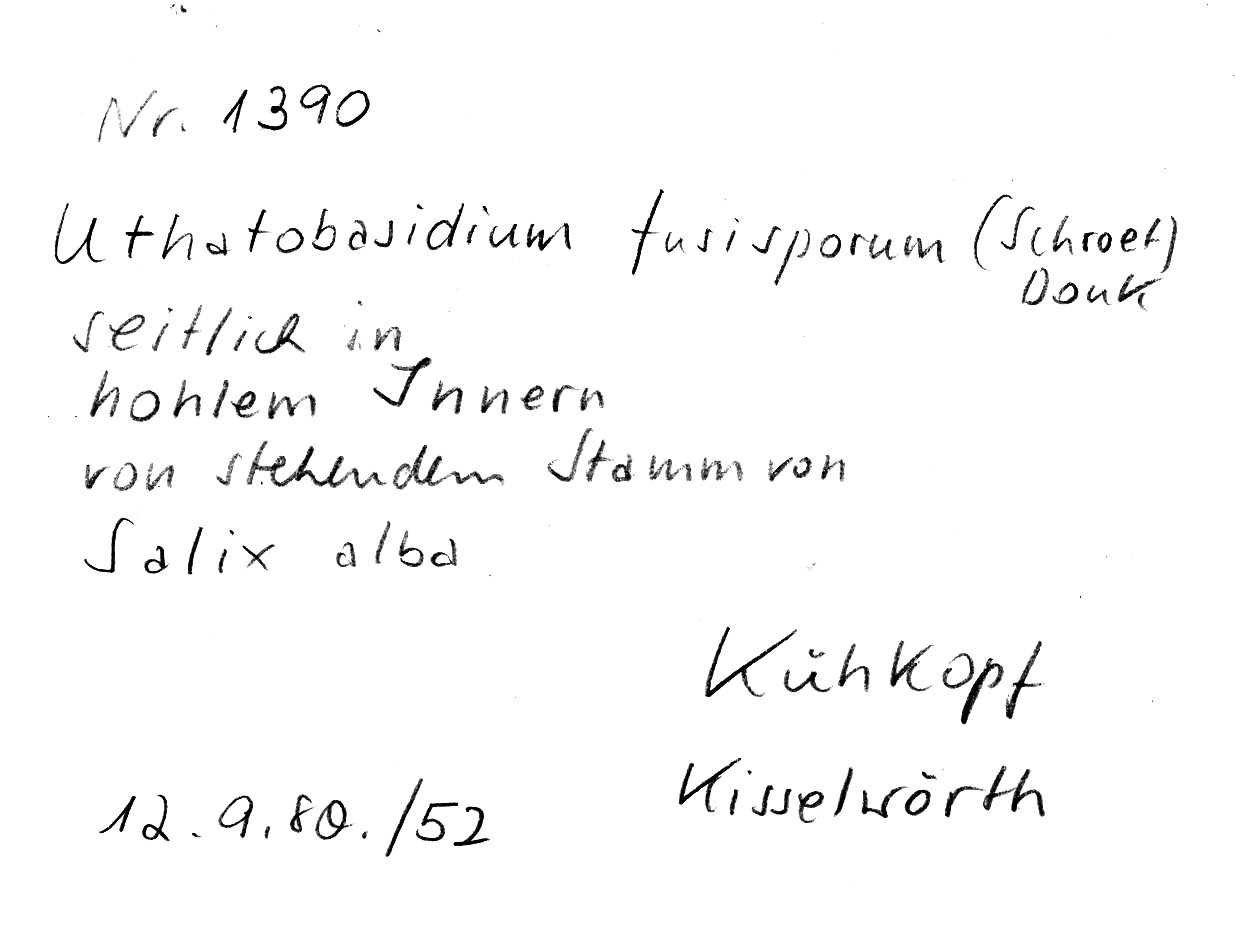 Nr. 1390
Uthatobasidium fusisporum (Schroet)
Donk
seitlich in
hohlem Innern
von stehendem Stamm von
Salix alba
Kühkopf
Kisselwörth
12.9.80./52